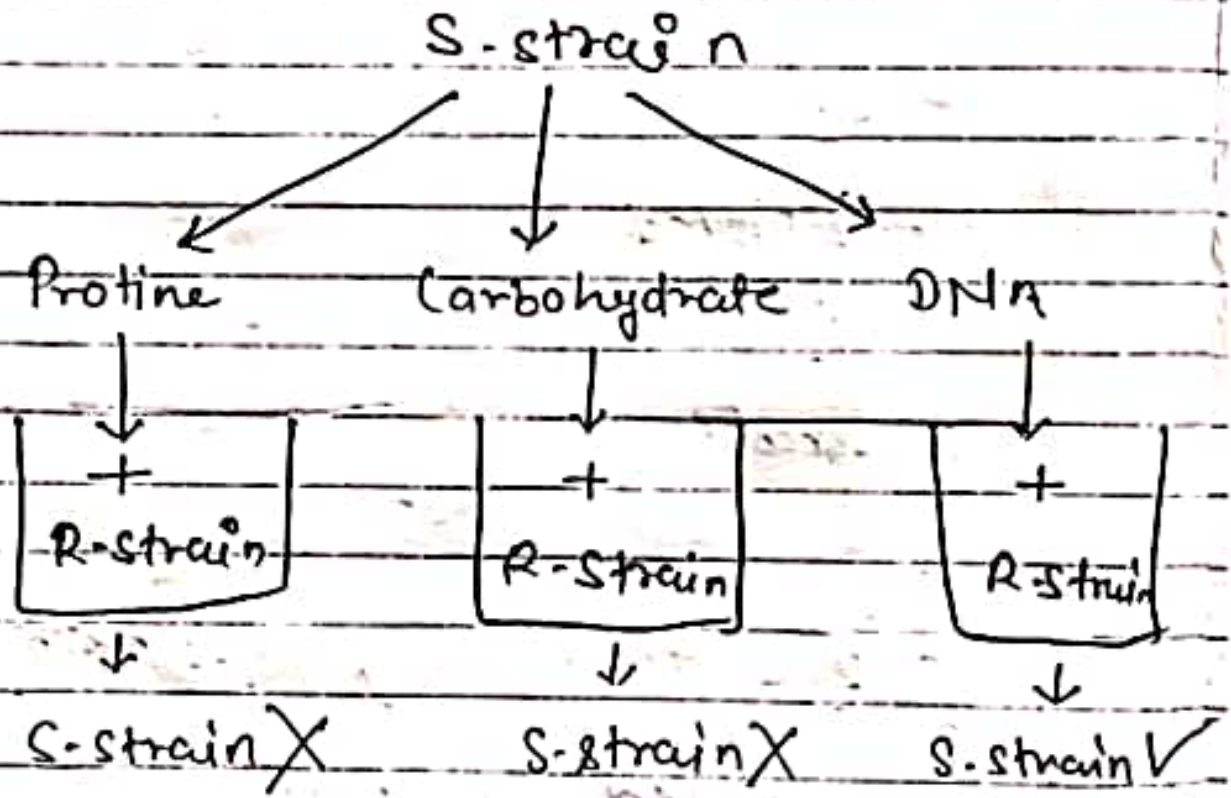 S-strain
Protine Carbohydrate DNA
+ + +
R-strain R-strain R-strain
S-strain X S-strain X S-strain ✓